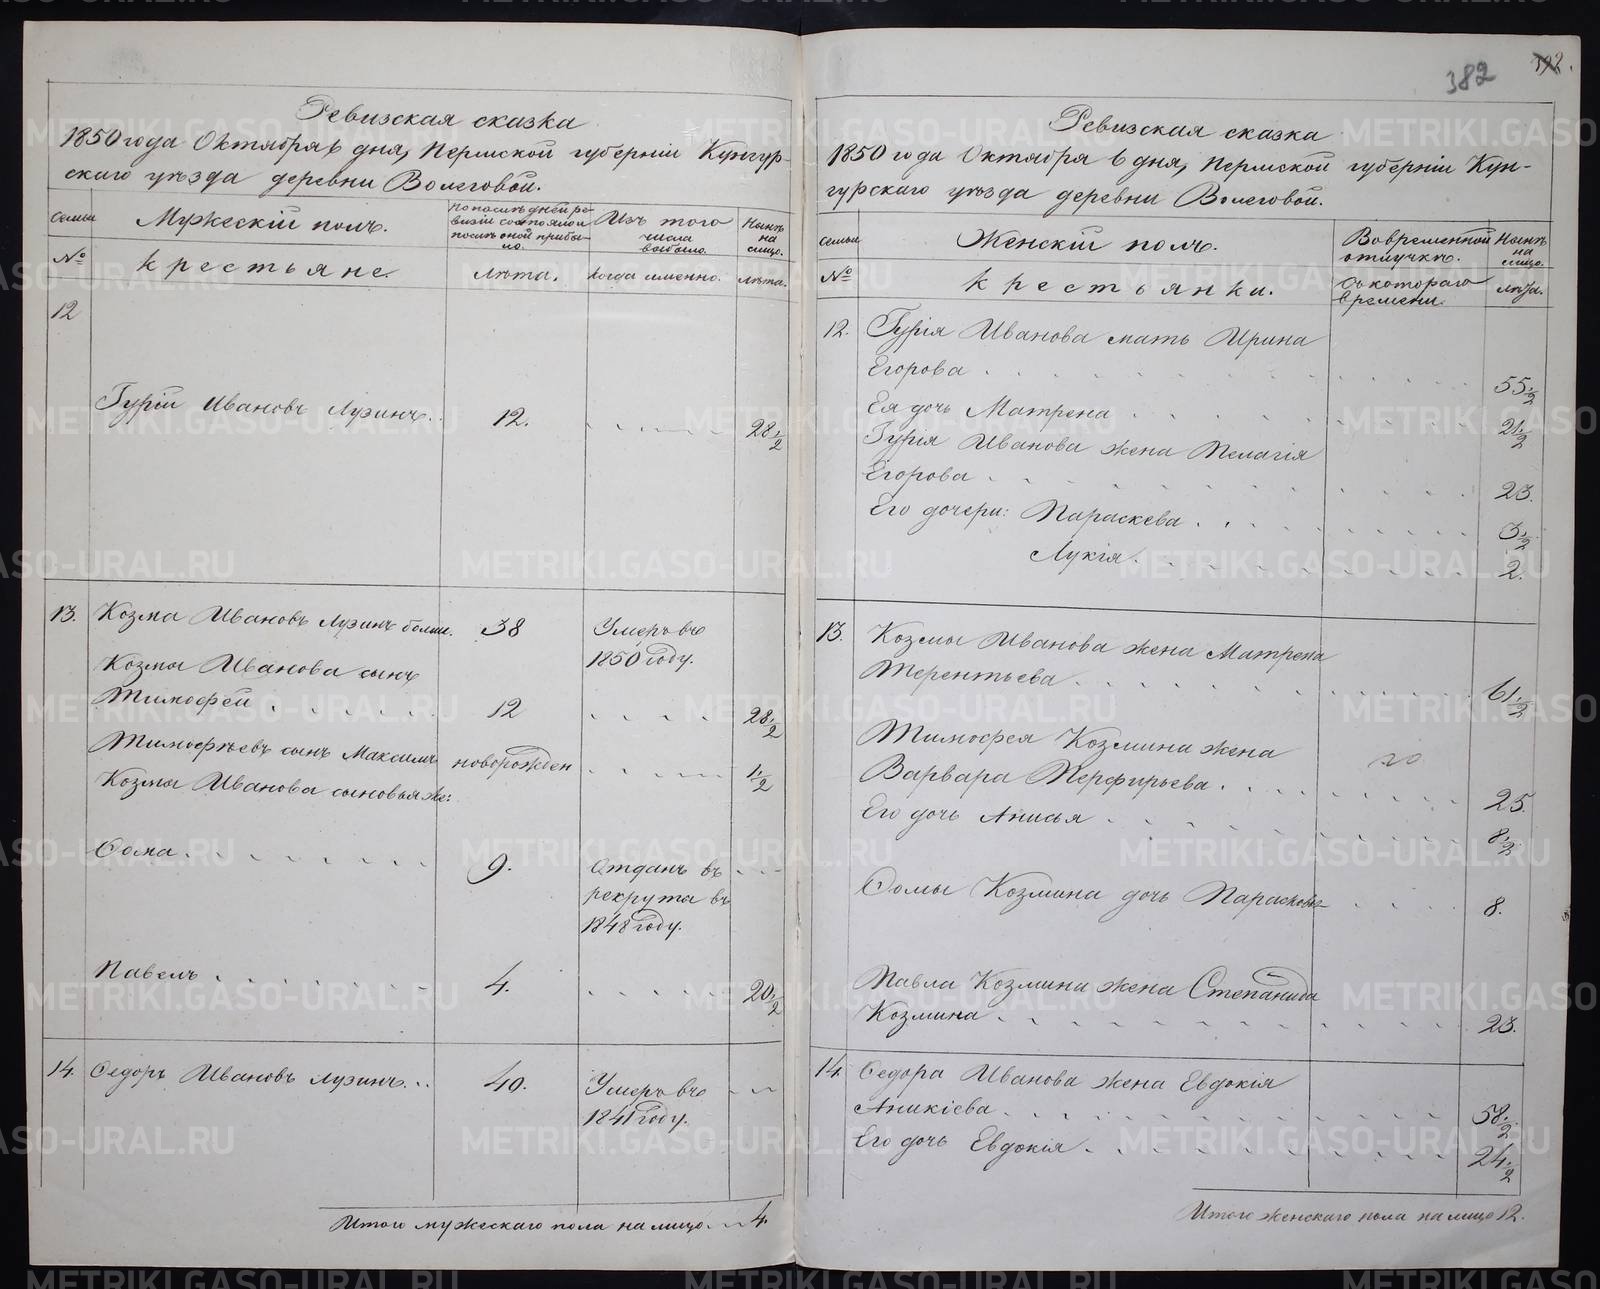 382
392.
Ревизская сказка
1850 года Октября 6 дня, Пермской губерніи Кунгур-
скаго уѣзда деревни Волеговой.
Семьи
№
Мужескій полъ.
крестьяне.
По послѣдней ре-
визіи состояло и
послѣ оной прибы-
ло.
лѣта.
Изъ того
числа
выбыло.
когда именно.
Нынѣ
на
лицо.
лѣта.
12
Гурій Ивановъ Лузинъ. 12. 28 1/2
13. Козма Ивановъ Лузинъ больш. 38 Умеръ въ
1850 году.
Козмы Иванова сынъ
Тимофей 12 28 1/2
Тимофѣевъ сынъ Максимъ новорожден 1/2
Козмы Иванова сыновья же:
Фома 9. Отданъ въ
рекрута въ
1848 году.
Павелъ 4. 20 1/2
14. Федоръ Ивановъ Лузинъ 40. Умеръ въ
1841 году.
Итого мужескаго пола на лицо 4.
Ревизская сказка
1850 года Октября 6 дня, Пермской губерніи Кун-
гурскаго уѣзда деревни Волеговой.
семьи
№
Женскій полъ.
крестьянки.
Во временной
отлучкѣ.
Съ котораго
времени.
Нынѣ
на
лицо.
лѣта.
12. Гурія Иванова мать Ирина
Егорова 55 1/2
Ея дочь Матрена 21 1/2
Гурія Иванова жена Пелагія
Егорова 23.
Его дочери: Параскева 3 1/2
Лукія 2.
13. Козмы Иванова жена Матрена
Терентьева 61 1/2
Тимофея Козмина жена
Варвара Перфирьева 25.
Его дочь Анисья 8 1/2
Фомы Козмина дочь Парасковья 8.
Павла Козмина жена Степанида
Козмина 23.
14. Федора Иванова жена Евдокія
Аникіева 58 1/2
Его дочь Евдокія 24 1/2
Итого женскаго пола на лицо 12.
METRIKI.GASO-URAL.RU